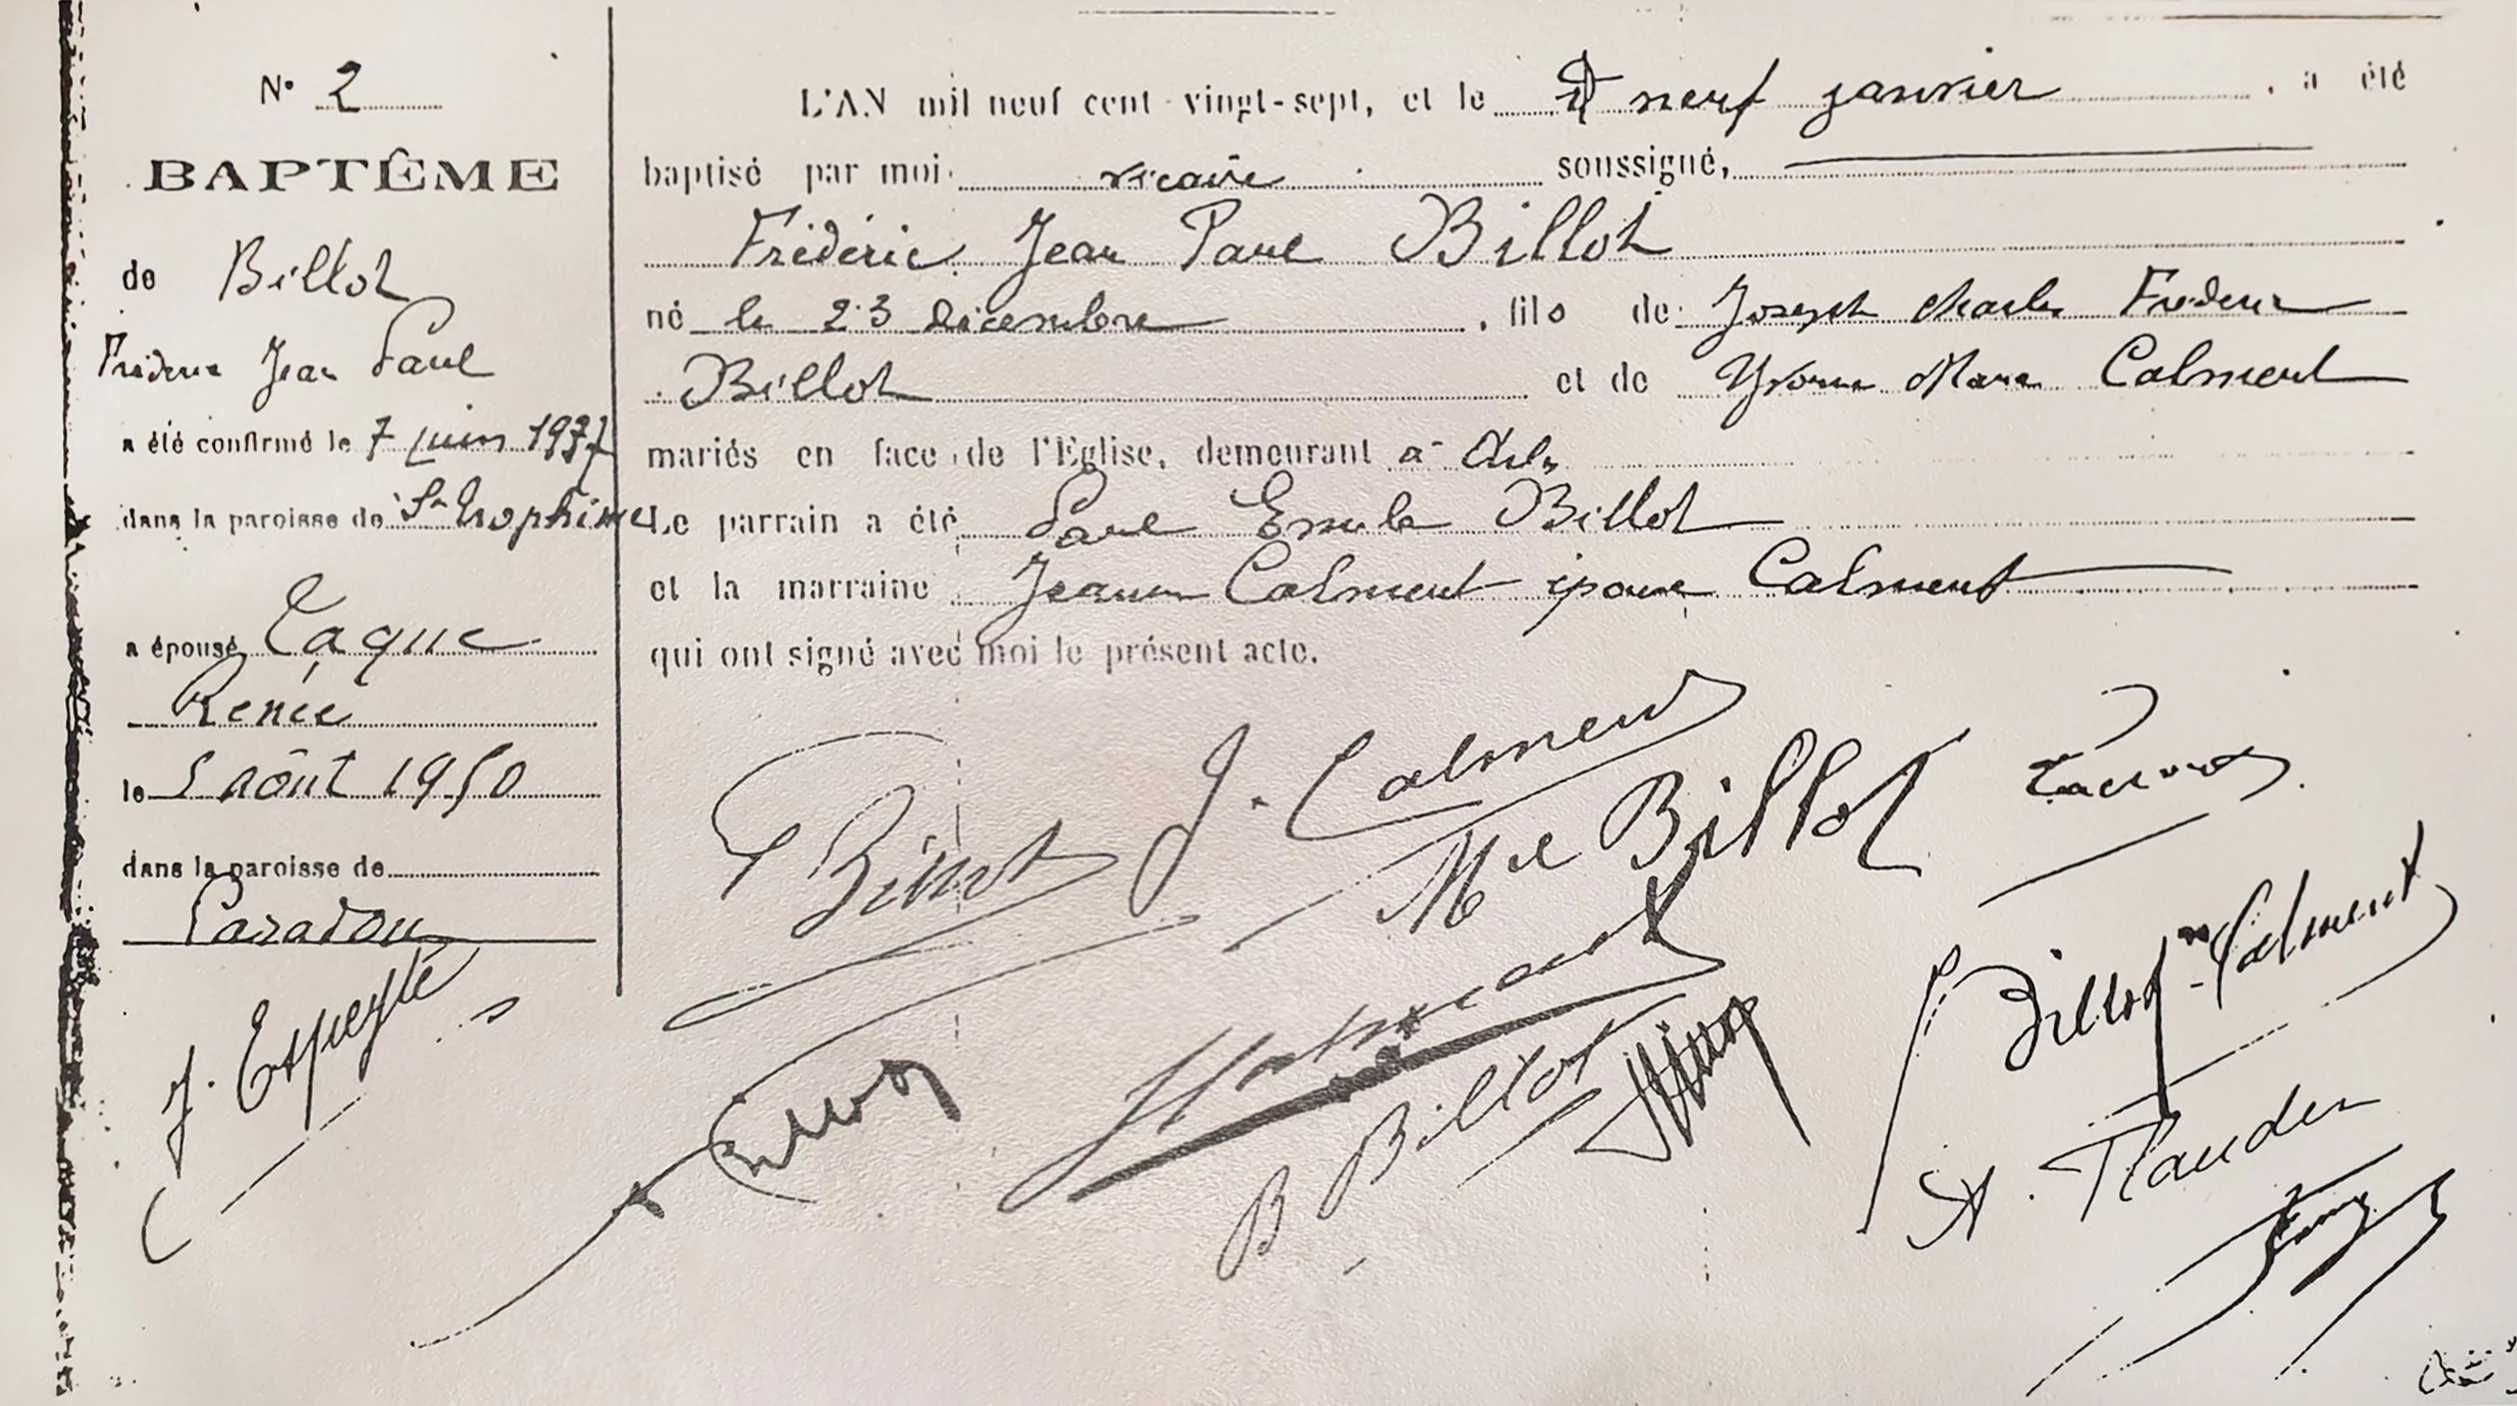 N° 2
BAPTÊME
de Billot
Frédéric Jean Paul
a été confirmé le 7 juin 1937
dans la paroisse de St Trophime
a épousé Laque
Renée
le 5 août 1950
dans la paroisse de
Paradou
J. Espeyte
L'AN mil neuf cent vingt-sept, et le neuf janvier, a été
baptisé par moi vicaire soussigné,
Frédéric Jean Paul Billot
né le 23 décembre, fils de Joseph Charles Frédéric
Billot et de Yvonne Marie Calment
mariés en face de l'Eglise, demeurant à Arles
Le parrain a été Paul Emile Billot
et la marraine Jeanne Calment épouse Calment
qui ont signé avec moi le présent acte.
J. Calment
Billot
Billot-Calment
B Billot